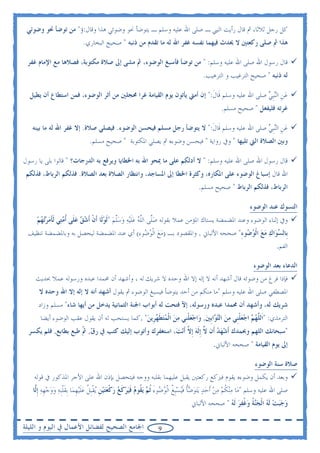 كل رجل ثلاثا، ثم قال رأيت النبي ــ صلى الله عليه وسلم ــ يتوضأ نحو وضوئي هذا وقال:ؤ" من توضأ نحو وضوئي
هذا ثم صلى ركعتين لا يحدث فيهما نفسه غفر الله له ما تقدم من ذنبه " صحيح البخاري.
✓ قال رسول الله صلى الله عليه وسلم: " من توضأ فأسبغ الوضوء، ثم مشى إلى صلاة مكتوبة، فصلاها مع الإمام غفر
له ذنبه " صحيح الترغيب و الترهيب.
✓ عَن النَّبِيِّ صلى الله عليه وسلم قَالَ:" إن أمتي يأتون يوم القيامة غرا محجلين من أثر الوضوء، فمن استطاع أن يطيل
غرته فليفعل " صحيح مسلم.
✓ عَن النَّبِيِّ صلى الله عليه وسلم قَالَ: " لا يتوضأ رجل مسلم فيحسن الوضوء. فيصلي صلاة. إلا غفر الله له ما بينه
وبين الصلاة التي تليها " وفي رواية " فيحسن وضوءه ثم يصلي المكتوبة " صحيح مسلم.
✓ قال رسول الله صلى الله عليه وسلم: " ألا أدلكم على ما يمحو الله به الخطايا ويرفع به الدرجات؟ " قالوا بلى يا رسول
الله قال إسباغ الوضوء على المكاره، وكثرة الخطا إلى المساجد، وانتظار الصلاة بعد الصلاة. فذلكم الرباط، فذلكم
الرباط، فذلكم الرباط " صحيح مسلم.
التسوك عند الوضوء
✓ وفي إثناء الوضوء وعند المضمضة يستاك المؤمن عملا بقوله صَلَّى اللَّهُ عَلَيْهِ وَسَلَّمَ " لَوْلَا أَنْ أَشُقَّ عَلَى أُمَّتِي لَأَمَرْتُهُمْ
بِالسِّوَاكِ مَعَ الْوُضُوءِ " صححه الألباني . والمقصود بـــ (مَعَ الْوُضُوءِ) أي عند المضمضة ليحصل به وبالمضمضة تنظيف
الفم.
الدعاء بعد الوضوء
✓ فإذا فرغ من وضوئه قال أشهد أن لا إله إلا الله وحده لا شريك له ، وأشهد أن محمدا عبده ورسوله عملا بحديث
المصطفى صلى الله عليه وسلم "ما منكم من أحد يتوضأ فيسبغ الوضوء ثم يقول أشهد أنه لا إله إلا الله وحده لا
شريك له، وأشهد أن محمدا عبده ورسوله، إلا فتحت له أبواب الجنة الثمانية يدخل من أيها شاء" مسلم وزاد
الترمذي: "اللهُمَّ اجْعَلْنِي مِنَ التَّوَّابِينَ، وَاجْعَلْنِي مِنَ الْمُتَطَهِّرِينَ"، كما يستحب له أن يقول عقب الوضوء أيضا
"سبحانك اللهم وبحمدك أَشْهَدُ أَنْ لَا إِلَهَ إِلَّا أَنْتَ، استغفرك وأتوب إليك كتب في رق. ثم طبع بطابع. فلم يكسر
إلى يوم القيامة " صححه الألباني.
صلاة سنة الوضوء
✓ وبعد أن يكمل وضوءه يقوم فيركع ركعتين يقبل عليهما بقلبه ووجهه فيتحصل بإذن الله على الأجر المذكور في قوله
صلى الله عليه وسلم "مَا مِنْكُمْ مِنْ أَحَدٍ يَتَوَضَّأُ فَيُسْبِغُ الْوُضُوءَ ثُمَّ يَقُومُ فَيَرْكَعُ رَكْعَتَيْنِ يُقْبِلُ عَلَيْهِمَا بِقَلْبِهِ وَوَجْهِهِ إِلَّا
وَجَبَتْ لَهُ الْجَنَّةُ وَغُفِرَ لَهُ " صححه الألباني
9 الجامع الصحيح لفضائل الأعمال في اليوم و الليلة